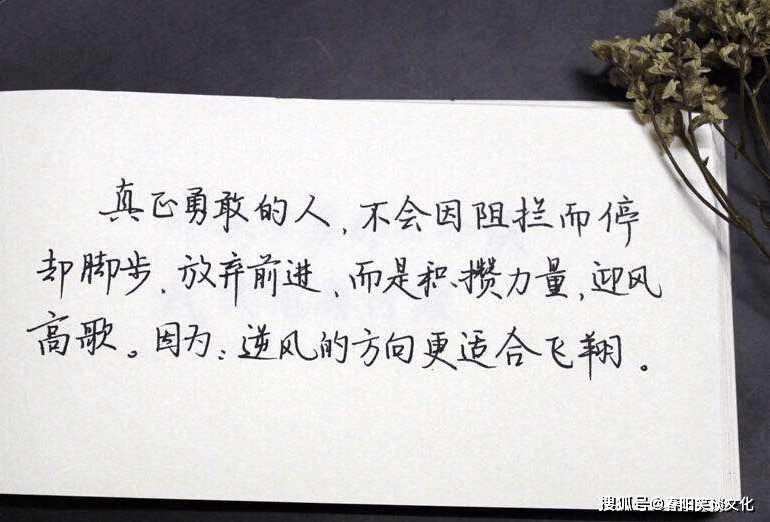 真正勇敢的人，不会因阻拦而停
却脚步、放弃前进、而是积攒力量，迎风
高歌。因为：逆风的方向更适合飞翔。
搜狐号@春阳笑谈文化